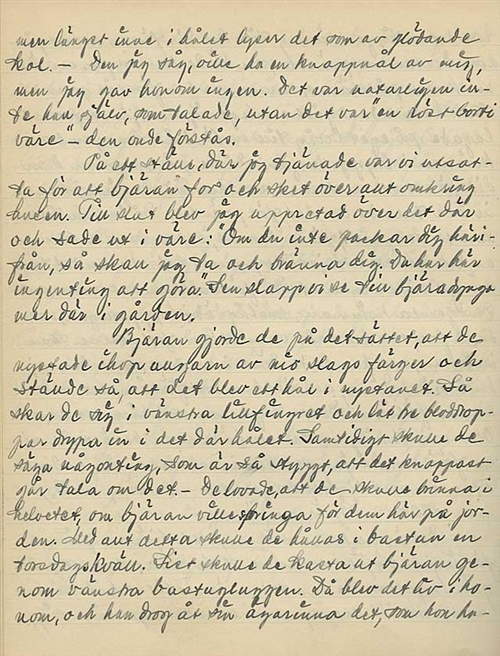 men längst inne i hålet lyser det som av glödande
kol. – Den jäg såg, ville ha en knappnål av mig,
men jag gav honom ingen. Det var naturligen in-
te han själv, som talade, utan det var "en röst borti
väre" – den onde förstås.
På ett ställe, där jag tjänade var vi utsat-
ta för att bjäran for och sket över allt omkring
husen. Till slut blev jag uppretad över det där
och sade ut i väre: "Om du inte packar dig häri-
från, så skall jag ta och bränna dig. Du har här
ingenting att göra." Sen slapp vi se till bjäradynga
mer där i gården.
Bjäran gjorde de på det sättet, att de
nystade ihop ullgarn av nio slags färger och
ställde så, att det blev ett hål i nystanet. Så
skar de sig i vänstra lillfingret och lät tre bloddrop-
par drypa in i det där hålet. Samtidigt skulle de
säga någonting, som är så styggt, att det knappast
går tala om det. – De lovade, att de skulle brinna i
helvetet, om bjäran ville springa för dem här på jor-
den. Med allt detta skulle de hållas i bastun en
torsdagskväll. Sist skulle de kasta ut bjäran ge-
nom vänstra bastugluggen. Då blev det liv i ho-
nom, och han drog åt sin ägarinna det, som hon ha-